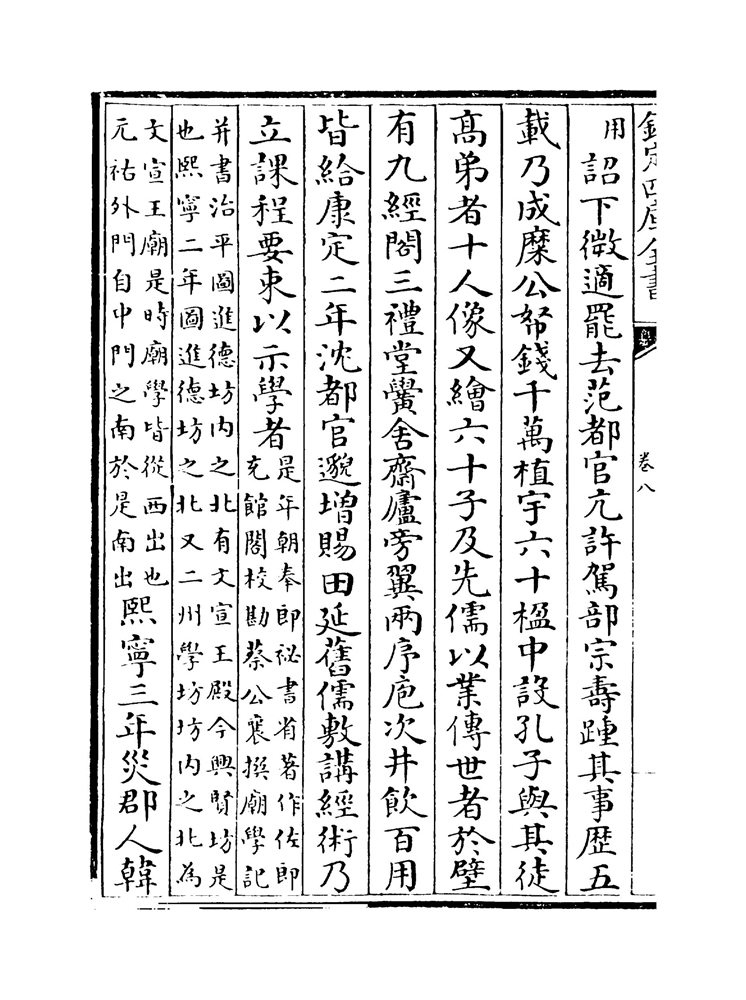 欽定四庫全書
卷八
用詔下微適罷去范都官亢許駕部宗壽踵其事歴五
載乃成糜公帑錢千萬植宇六十楹中設孔子與其徒
髙弟者十人像又繪六十子及先儒以業傳世者於壁
有九經閣三禮堂黌舍齋廬旁翼兩序庖次井飲百用
皆給康定二年沈都官邈增賜田延舊儒敷講經術乃
立課程要束以示學者是年朝奉郎祕書省著作佐郎
充館閣校勘蔡公襄撰廟學記
并書治平圖進德坊内之北有文宣王殿今興賢坊是
也熙寧二年圖進德坊之北又二州學坊坊内之北為
文宣王廟是時廟學皆從西出也
元祐外門自中門之南於是南出熙寧三年災郡人韓